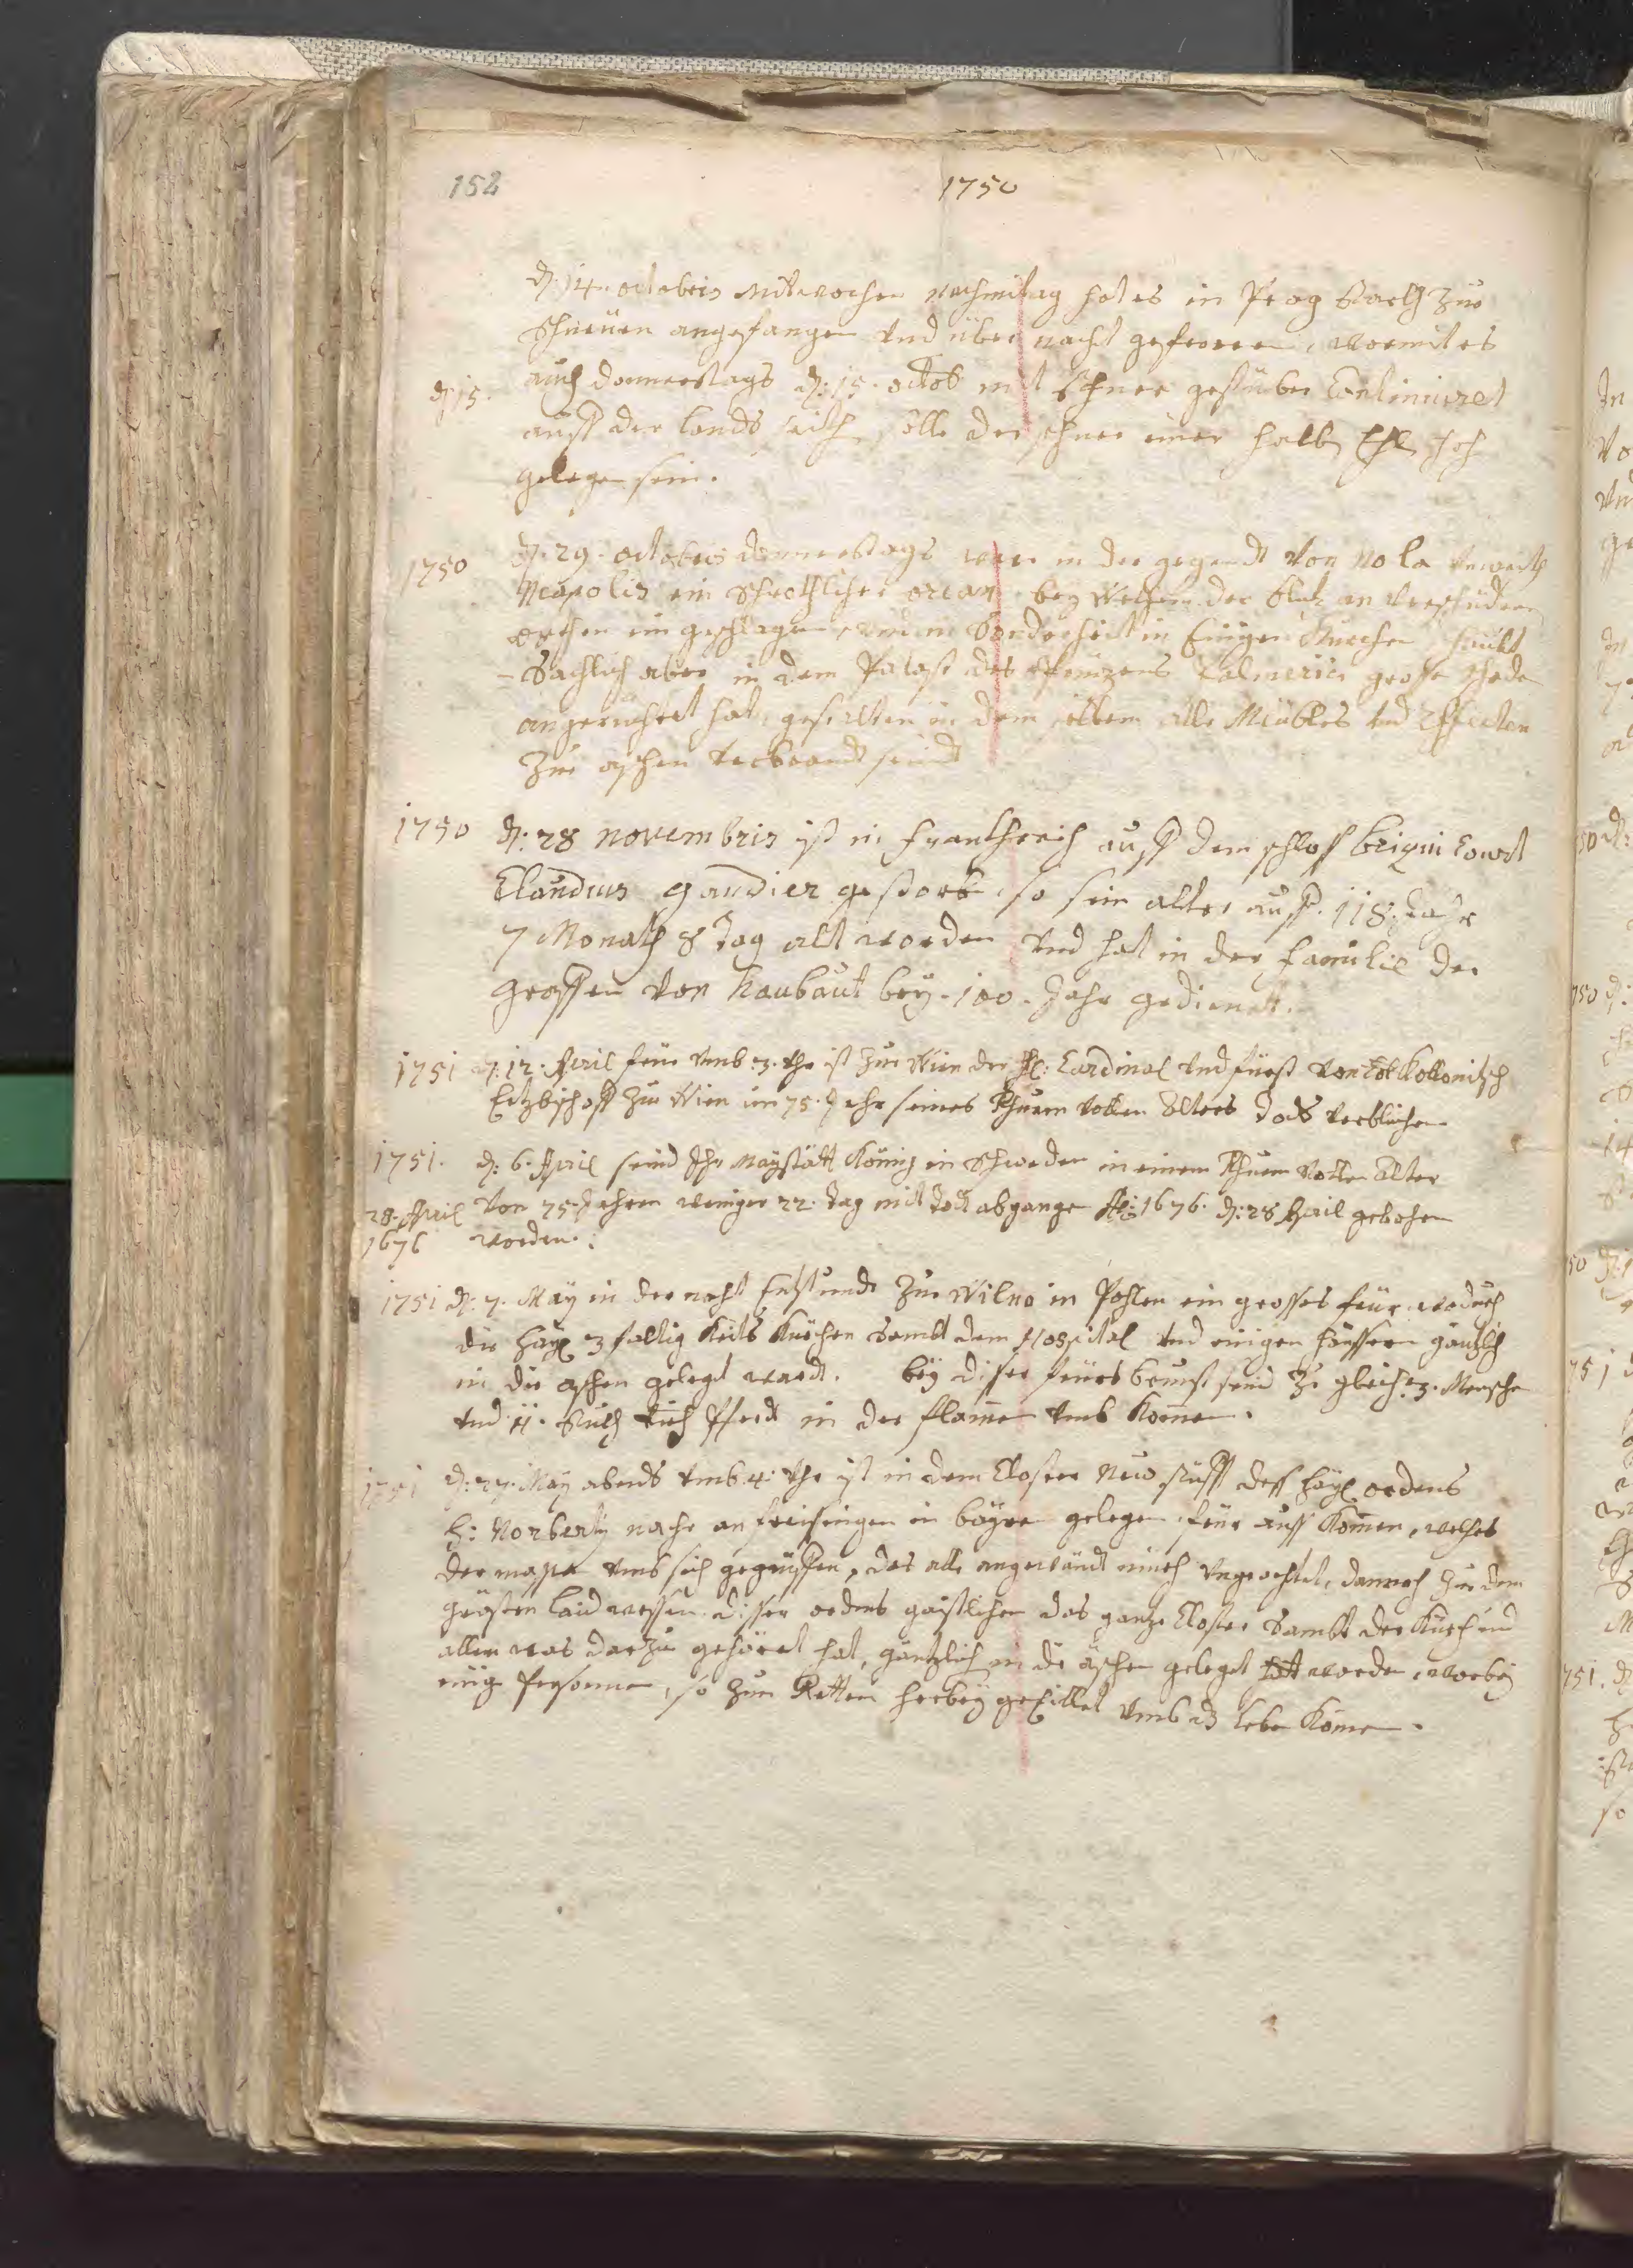 152
1750
d: 14. octobris Mitwochen nachmitag hat es in Prag starckh zue
schneüen angefangen vnd über nacht gefroren, wormit es
d 15. auch donnerstags d: 15. octob mit schnee gestüber Continuiret
auff der lands seith solle der schnee einer halb Ehl hoch
gelegen sein.
1750 d. 29. octobris donnerstags war in der gegendt von Nola vnweith
Neapolis ein schröckhlicher orcan bey welchem der blitz an verschüdene
orthen ein geschlagen, vnd in Sonderheit in Einigen Kürchen haubt
-Sachlich aber in dem Palast des Prinzens Palmerici grosse schade
angerichtet hat, gestalten in dem selben alle Meubles vnd Effecten
Zue aschen verbrandt seind
1750 d: 28 novembris ist in Franckhreich auff dem schloss brigni Court
Claudius Gaudier gestorb, so sein alter auff 118. Jahr
7 Monath 8 tag alt worden vnd hat in der familie der
Graffen von haubaut bey 100. Jahr gedienet.
1751 d: 12. April frue vmb 3. vhr ist zue Wien der H: Cardinal vnd fürst von Kollonitsch
Ertzbischoff zue Wien im 75. Jahr seines Ruhm vollen Alters Tods verblichen
1751. d: 6. April seind Ihr Mayestätt König in Schweden in einem Ruhm vollen Alter
28. April von 75. Jahren weniger 22. tag mit Todt abgangen 1676. d: 28 April gebohren
1676 worden.
1751 d: 7. May in der nacht Entstunde zue Wilno in Pohlen ein grosses feür wodurch
die Heyl 3 faltig Keits Kirchen Sambt dem Hospital vnd einigen Häussern gäntzlich
in die aschen gelegt wardt. bey diser feürs brunst seind zu gleich 3. Mensche
vnd 11. stuckh Pferdt in der flamme vmb Komme.
1751 d: 27. May abends vmb 4. vhr ist in dem Closter Neustüfft dess Heyl ordens
H: Norberty nache an freisingen in bayren gelegen feür auss Komen, welches
der massen vmb sich gegriffen, das alle angewändt mieh vngeachtet, dannoch zue dem
grösten laidwessen disser ordens gaistlichen das ganze Closter Sambt der Kürch vnd
allen was darzue gehöret hat, gäntzlich in die äschen geleget worden, worbey
einige Personen, so zum Retten herbey geeillet vmb dz leben Komen.